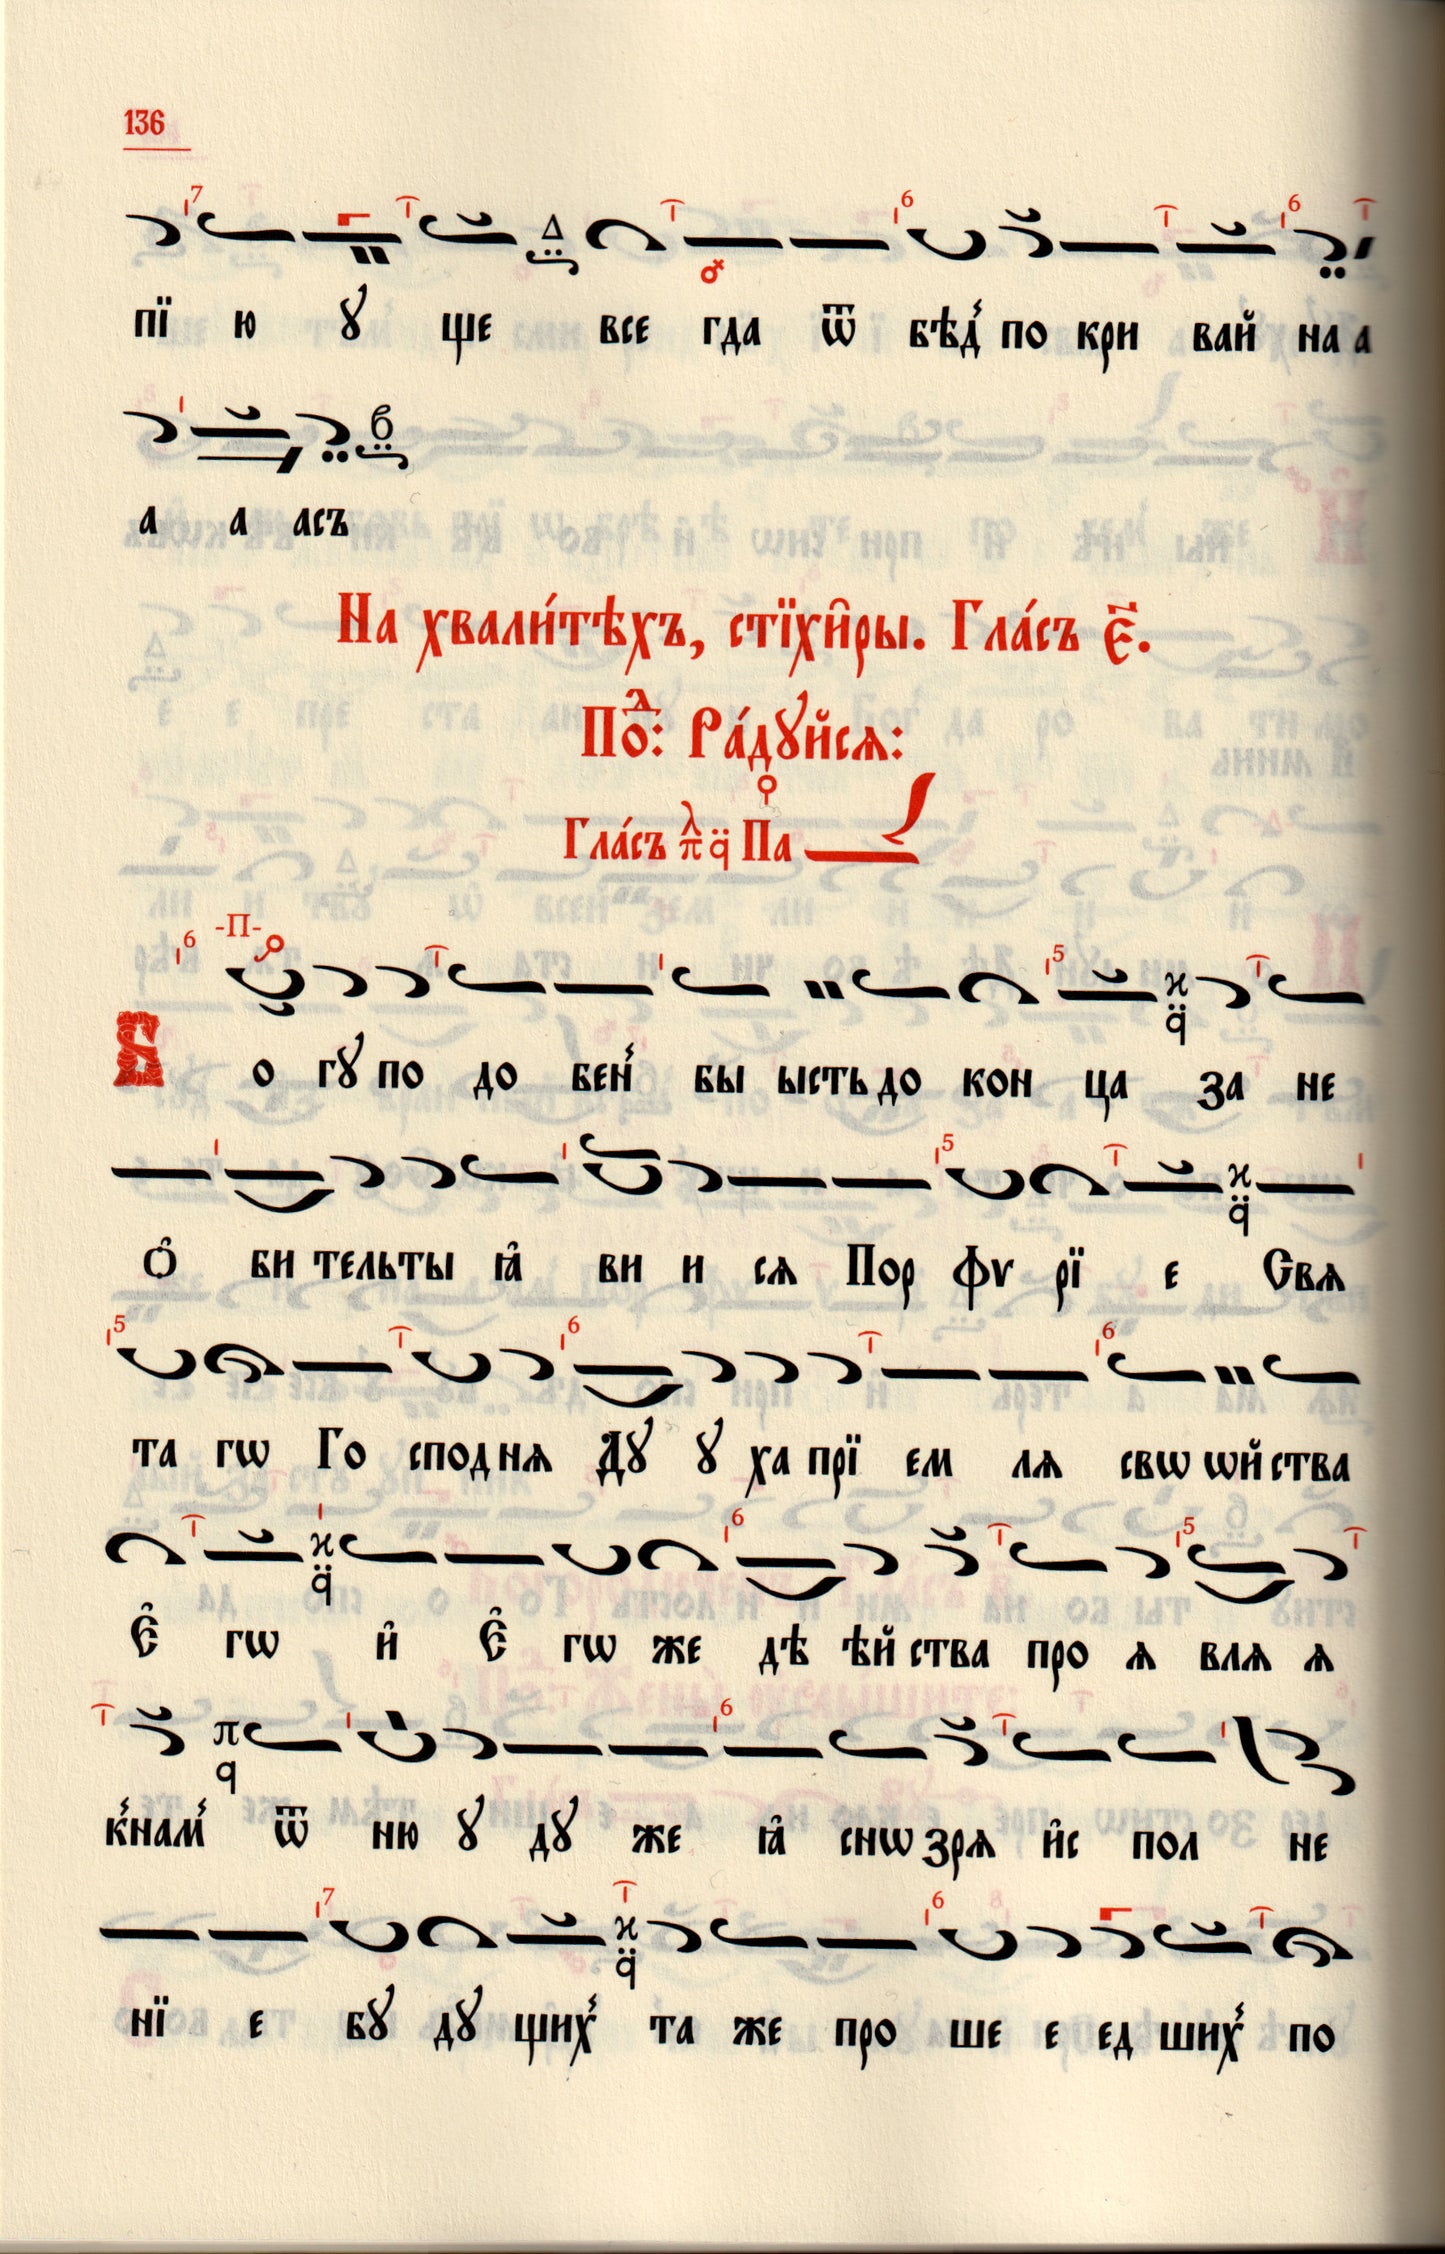 136
пї ю ꙋ ще все гда ѿ бѣд̾ по кри вай на а
а а асъ
На хвали́тѣхъ, стїхи̑ры. Гла́съ є҃.
Поⷣ: Ра́дꙋйсѧ:
Гла́съ πλ q̈ Па
-П-
Б о гꙋ по до бен̾ бы ысть до кон ца за не
ѻ҆ би тель ты ꙗ҆ ви и сѧ Пор фѵ рї е Свѧ
та гѡ Го спод нѧ Дꙋ ꙋ ха прї ем лѧ свѡ ѡй ства
Є҆ гѡ и҆ Є҆ гѡ же дѣ ѣй ства про ѧ влѧ ѧ
к̾нам̾ ѿ ню ꙋ дꙋ же ꙗ҆ снѡ зрѧ и҆с пол не
нї е бꙋ дꙋ щих̾ та же про ше е ед ших̾ по